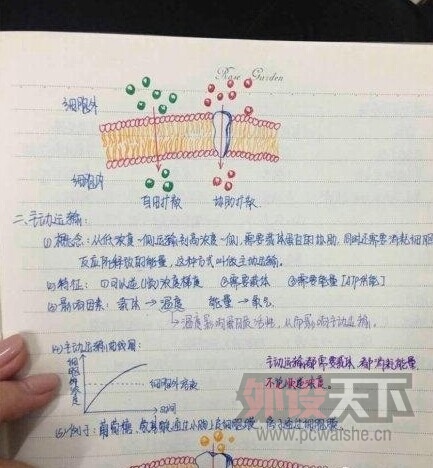 Rose Garden
细胞外
细胞内
自由扩散 协助扩散
二、主动运输:
(1) 概念: 从低浓度一侧运输到高浓度一侧, 需要载体蛋白的协助, 同时还需要消耗细胞
反应所释放的能量, 这种方式叫做主动运输。
(2) 特征: ①可以逆(低)浓度梯度 ②需要载体 ③需要能量[ATP供能]
(3) 影响因素: 载体 → 温度 能量 → 氧气
↳ 温度影响蛋白质活性, 从而影响主动运输。
(4) 主动运输曲线图:
主动运输都需要载体, 都消耗能量,
不
浓度。
细胞外浓度
时间
(5) 例子: 葡萄糖、氨基酸通过小肠上皮细胞膜, 离子通过细胞膜。
外设天下
www.pcwaishe.cn